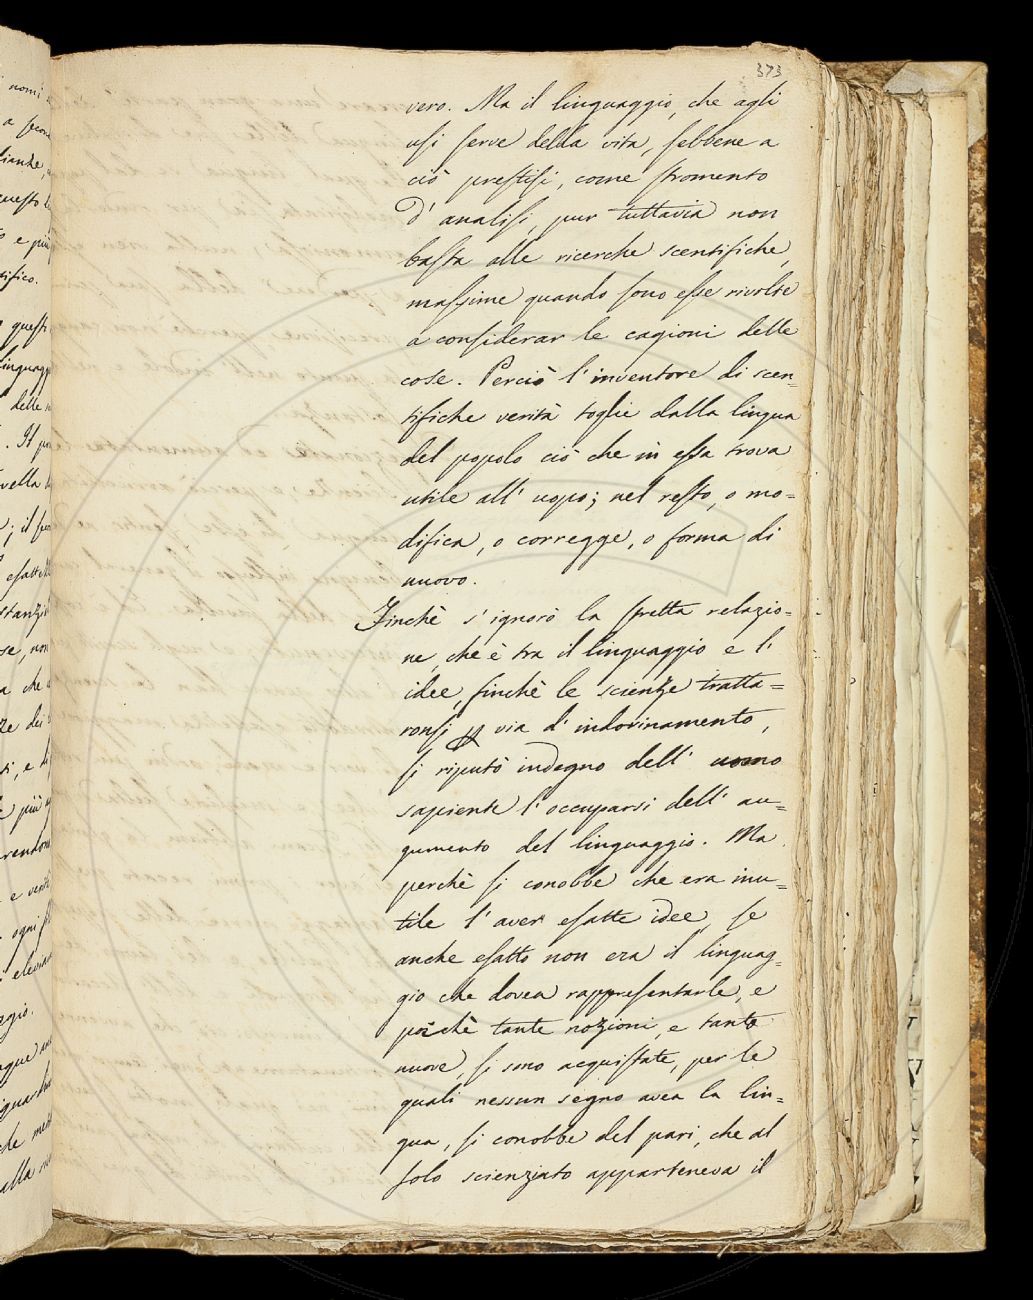 373
vero. Ma il linguaggio, che agli
usi serve della vita, sebbene a
ciò prestisi, come stromento
d'analisi, pur tuttavia non
basta alle ricerche scentifiche,
massime quando sono esse rivolte
a considerar le cagioni delle
cose. Perciò l'inventore di scen=
tifiche verità toglie dalla lingua
del popolo ciò che in essa trova
utile all'uopo; nel resto, o mo=
difica, o corregge, o forma di
nuovo.
Finchè s'ignorò la stretta relazio=
ne, che è tra il linguaggio e l'
idee, finchè le scienze tratta=
ronsi per via d'indovinamento,
si riputò indegno dell'uomo
sapiente l'occuparsi dell'au=
gumento del linguaggio. Ma
perchè si conobbe che era inu=
tile l'aver esatte idee, se
anche esatto non era il linguag=
gio che dovea rappresentarle, e
poichè tante nozioni, e tanto
nuove, si sono acquistate, per le
quali nessun segno avea la lin=
gua, si conobbe del pari, che al
solo scienziato apparteneva il